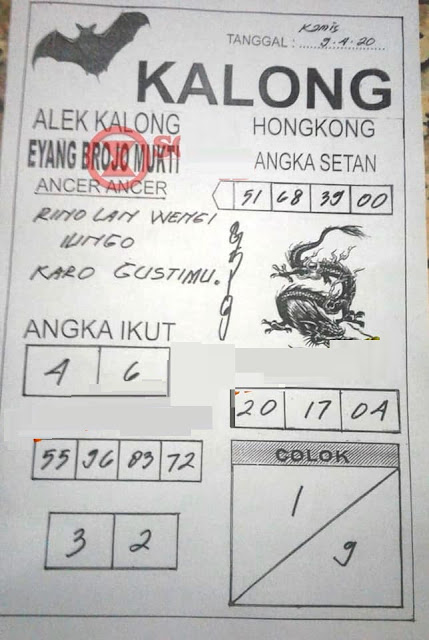 Kamis
TANGGAL : 9.4.20
KALONG
ALEK KALONG
HONGKONG
EYANG BROJO MUKTI
ANGKA SETAN
ANCER ANCER
51 68 39 00
RINO LAN WENGI
KARO GUSTIMU.
ANGKA IKUT
4 6
20 17 04
55 96 83 72
COLOK
1
9
3 2